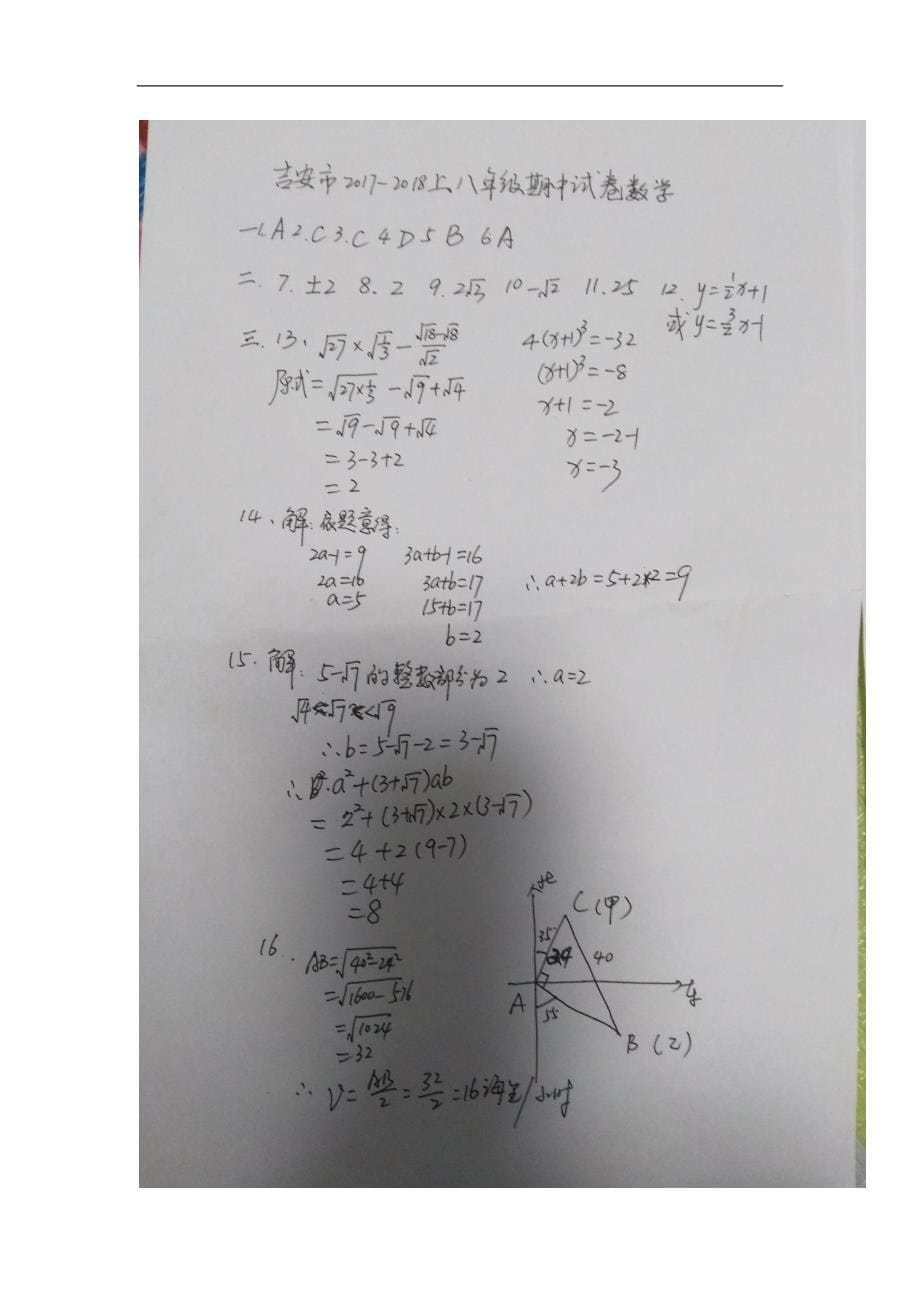 吉安市2017-2018上八年级期中试卷数学
一1.A 2.C 3.C 4 D 5 B 6A
二. 7. ±2 8. 2 9. 2√3 10 -√2 11. 25 12. y=1/2x+1
或y=3/2x-1
三. 13、 √27×√(1/3) - (√18-√8)/√2
原式=√(27×1/3) -√9+√4
=√9-√9+√4
=3-3+2
=2
4(x+1)³=-32
(x+1)³=-8
x+1=-2
x=-2-1
x=-3
14、解:依题意得:
2a-1=9
2a=16
a=5
3a+b-1=16
3a+b=17
15+b=17
b=2
∴a+2b=5+2×2=9
15. 解: 5-√7的整数部分为2 ∴a=2
√4<√7<√9
∴b=5-√7-2=3-√7
∴a²+(3+√7)ab
= 2²+(3+√7)×2×(3-√7)
=4+2(9-7)
=4+4
=8
16.
AB=√(40²-24²)
=√(1600-576)
=√1024
=32
∴ V=AB/2=32/2=16海里/小时
北
C(甲)
35°
24
40
A
55
B(乙)